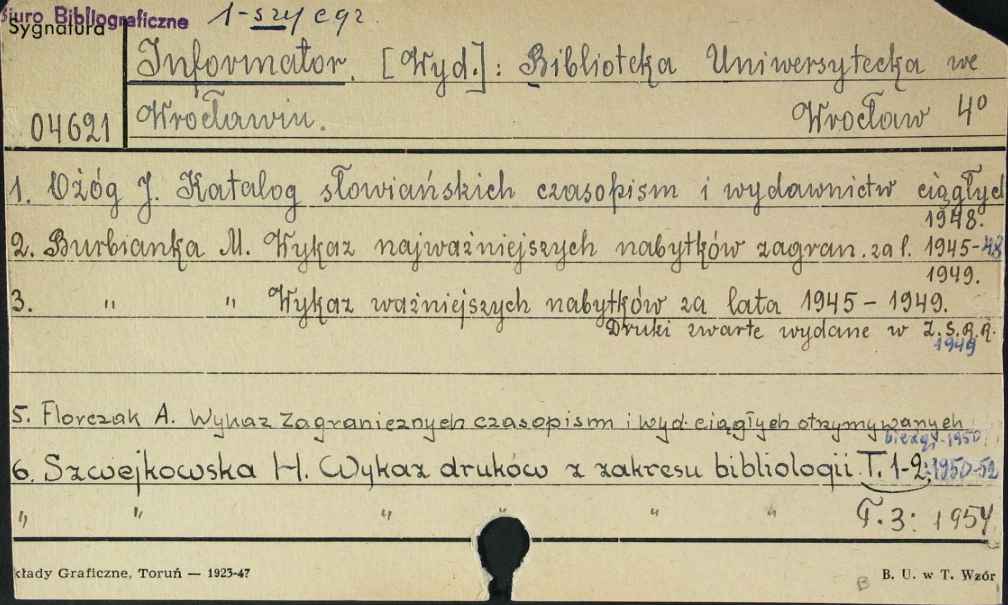 Biuro Bibliograficzne 1-szy egz.
Sygnatura
Informator. [Wyd.]: Biblioteka Uniwersytecka we
04621 Wrocławiu. Wrocław 4°
1. Ożóg J. Katalog słowiańskich czasopism i wydawnictw ciągłych
1948.
2. Burbianka M. Wykaz najważniejszych nabytków zagran. za l. 1945-48
1949.
3. " " Wykaz ważniejszych nabytków za lata 1945 - 1949.
Druki zwarte wydane w Z.S.R.R.
1949
5. Florczak A. Wykaz zagranicznych czasopism i wyd. ciągłych otrzymywanych
bieżąc. 1950.
6. Szwejkowska H. Wykaz druków z zakresu bibliologii T. 1-2: 1950-52
" " " " " " T. 3: 1954
kłady Graficzne, Toruń — 1923-47 B B. U. w T. Wzór